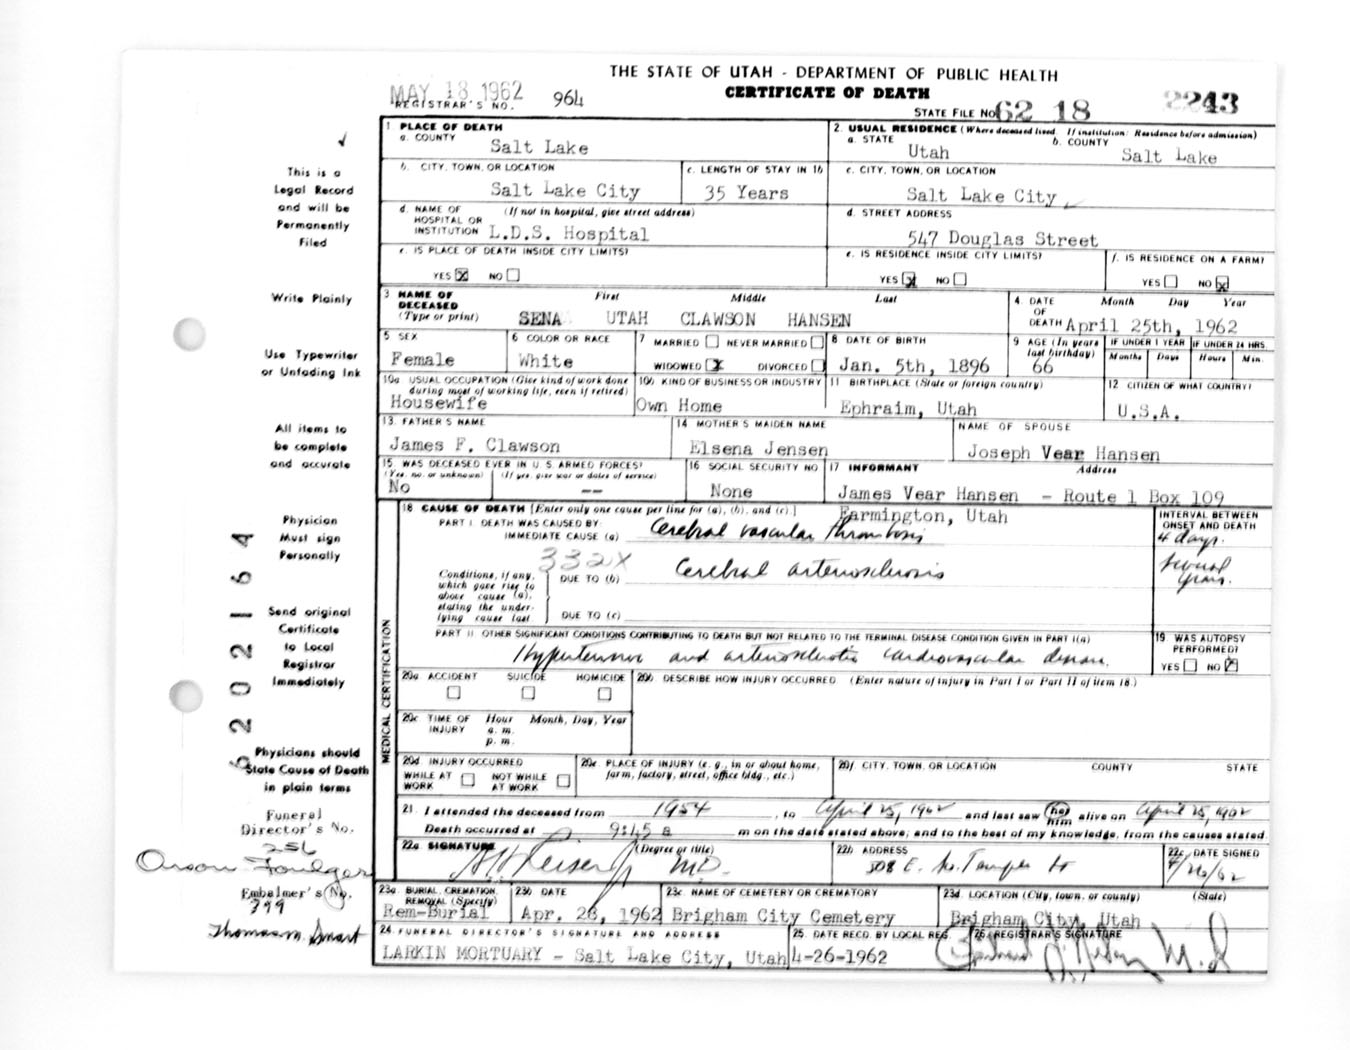 THE STATE OF UTAH - DEPARTMENT OF PUBLIC HEALTH
CERTIFICATE OF DEATH
MAY 18 1962
REGISTRAR'S NO. 964
STATE FILE NO. 62 18 2243
This is a
Legal Record
and will be
Permanently
Filed
Write Plainly
Use Typewriter
or Unfading Ink
All items to
be complete
and accurate
Physician
Must sign
Personally
Send original
Certificate
to Local
Registrar
Immediately
Physicians should
State Cause of Death
in plain terms
Funeral
Director's No.
256
Orson Foulger
Embalmer's No.
399
Thomas M. Smart
1 PLACE OF DEATH
a. COUNTY Salt Lake
b. CITY, TOWN, OR LOCATION
Salt Lake City
c. LENGTH OF STAY IN 1b
35 Years
d. NAME OF HOSPITAL OR INSTITUTION (If not in hospital, give street address)
L.D.S. Hospital
e. IS PLACE OF DEATH INSIDE CITY LIMITS?
YES X NO
2. USUAL RESIDENCE (Where deceased lived. If institution: Residence before admission)
a. STATE Utah b. COUNTY Salt Lake
c. CITY, TOWN, OR LOCATION
Salt Lake City
d. STREET ADDRESS
547 Douglas Street
e. IS RESIDENCE INSIDE CITY LIMITS?
YES X NO
f. IS RESIDENCE ON A FARM?
YES NO X
3 NAME OF DECEASED (Type or print) First Middle Last
SENA UTAH CLAWSON HANSEN
4. DATE OF DEATH Month Day Year
April 25th, 1962
5 SEX
Female
6 COLOR OR RACE
White
7 MARRIED NEVER MARRIED
WIDOWED X DIVORCED
8 DATE OF BIRTH
Jan. 5th, 1896
9 AGE (In years last birthday)
66
IF UNDER 1 YEAR
Months Days
IF UNDER 24 HRS.
Hours Min.
10a USUAL OCCUPATION (Give kind of work done during most of working life, even if retired)
Housewife
10b KIND OF BUSINESS OR INDUSTRY
Own Home
11 BIRTHPLACE (State or foreign country)
Ephraim, Utah
12 CITIZEN OF WHAT COUNTRY?
U.S.A.
13. FATHER'S NAME
James F. Clawson
14 MOTHER'S MAIDEN NAME
Elsena Jensen
NAME OF SPOUSE
Joseph Vear Hansen
15 WAS DECEASED EVER IN U.S. ARMED FORCES?
(Yes, no, or unknown) (If yes, give war or dates of service)
No --
16 SOCIAL SECURITY NO
None
17 INFORMANT Address
James Vear Hansen - Route 1 Box 109
Farmington, Utah
MEDICAL CERTIFICATION
18 CAUSE OF DEATH [Enter only one cause per line for (a), (b), and (c).]
PART I. DEATH WAS CAUSED BY:
IMMEDIATE CAUSE (a) Cerebral vascular thrombosis
332X
Conditions, if any, which gave rise to above cause (a), stating the underlying cause last
DUE TO (b) Cerebral arteriosclerosis
DUE TO (c)
INTERVAL BETWEEN ONSET AND DEATH
4 days.
several years.
PART II OTHER SIGNIFICANT CONDITIONS CONTRIBUTING TO DEATH BUT NOT RELATED TO THE TERMINAL DISEASE CONDITION GIVEN IN PART I(a)
Hypertensive and arteriosclerotic cardiovascular disease.
19 WAS AUTOPSY PERFORMED?
YES NO X
20a ACCIDENT SUICIDE HOMICIDE
20b DESCRIBE HOW INJURY OCCURRED (Enter nature of injury in Part I or Part II of item 18.)
20c TIME OF INJURY Hour Month, Day, Year
a. m.
p. m.
20d INJURY OCCURRED
WHILE AT WORK NOT WHILE AT WORK
20e. PLACE OF INJURY (e. g., in or about home, farm, factory, street, office bldg., etc.)
20f. CITY, TOWN, OR LOCATION COUNTY STATE
21. I attended the deceased from 1954, to April 25, 1962 and last saw her him alive on April 25, 1962
Death occurred at 9:45 a m on the date stated above; and to the best of my knowledge, from the causes stated
22a SIGNATURE (Degree or title)
M.D.
22b ADDRESS
508 E. So. Temple St
22c DATE SIGNED
4/26/62
23a. BURIAL, CREMATION, REMOVAL (Specify)
Rem-Burial
23b DATE
Apr. 28, 1962
23c NAME OF CEMETERY OR CREMATORY
Brigham City Cemetery
23d LOCATION (City, town, or county) (State)
Brigham City, Utah
24 FUNERAL DIRECTOR'S SIGNATURE AND ADDRESS
LARKIN MORTUARY - Salt Lake City, Utah
25. DATE REC'D. BY LOCAL REG.
4-26-1962
26. REGISTRAR'S SIGNATURE
M.D.